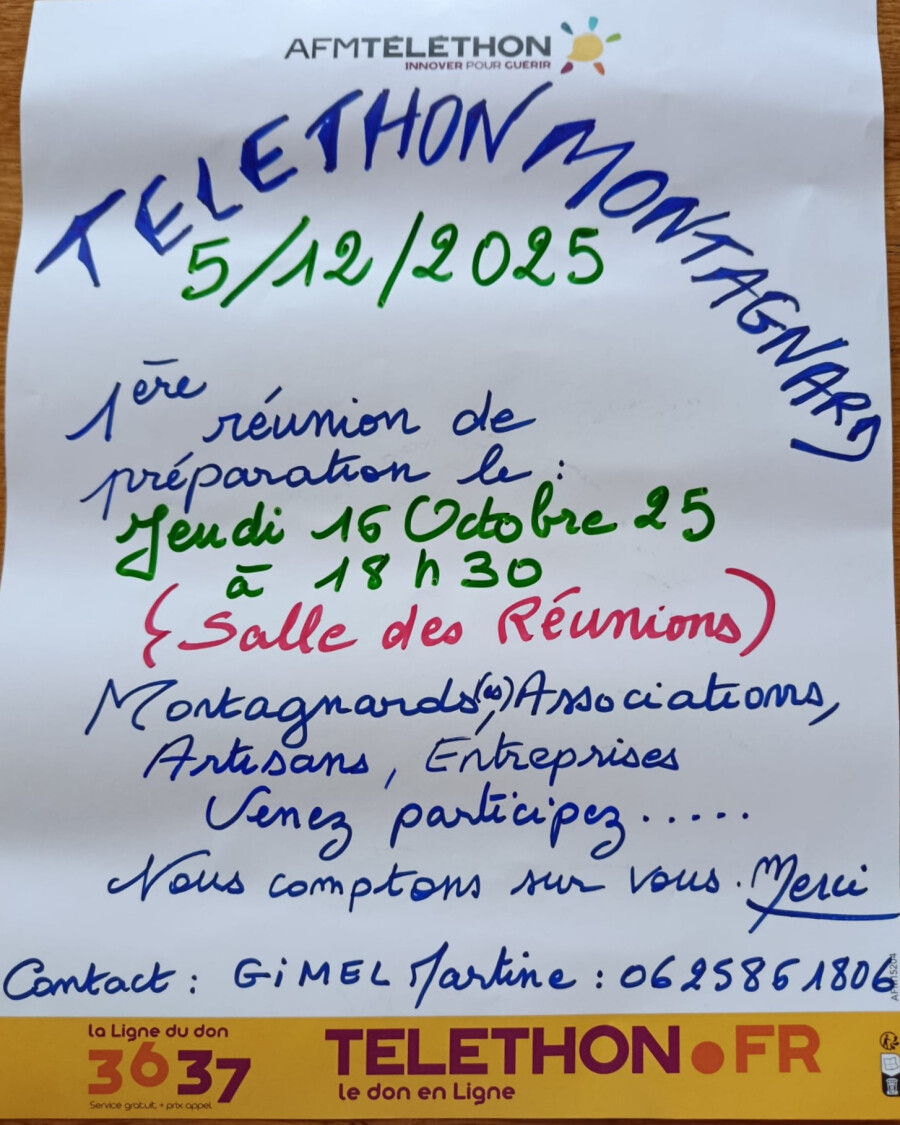 AFMTÉLÉTHON
INNOVER POUR GUÉRIR
TELETHON MONTAGNARD
5/12/2025
1ère réunion de
préparation le :
Jeudi 16 Octobre 25
à 18 h 30
(Salle des Réunions)
Montagnards(es), Associations,
Artisans, Entreprises
Venez participez.....
Nous comptons sur vous. Merci
Contact : GiMEL Martine : 0625861806
AFM15204
la Ligne du don
3637
Service gratuit + prix appel
TELETHON.FR
le don en Ligne